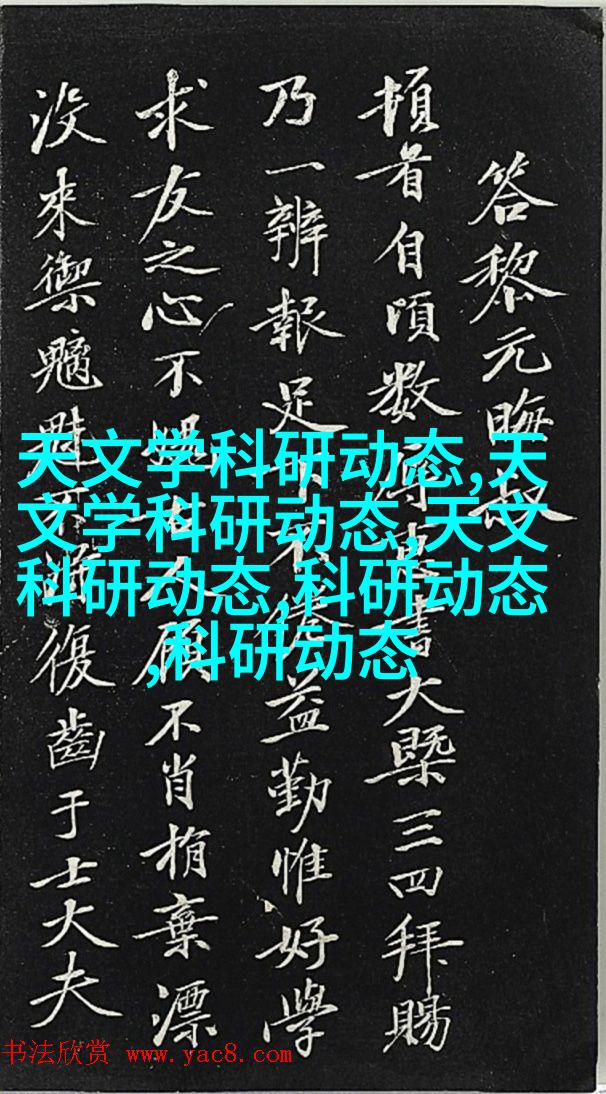 答黎元晦叔
頓首自頃数辱惠書大槩三四拜賜
乃一辨報足下不倦益勤惟好學
求友之心不愧古人顧不肖捐棄漂
没來禦魑魅不復齒于士大夫
天文学科研动态,天
文学科研动态,天文
科研动态,科研动态
,科研动态
书法欣赏 www.yac8.com